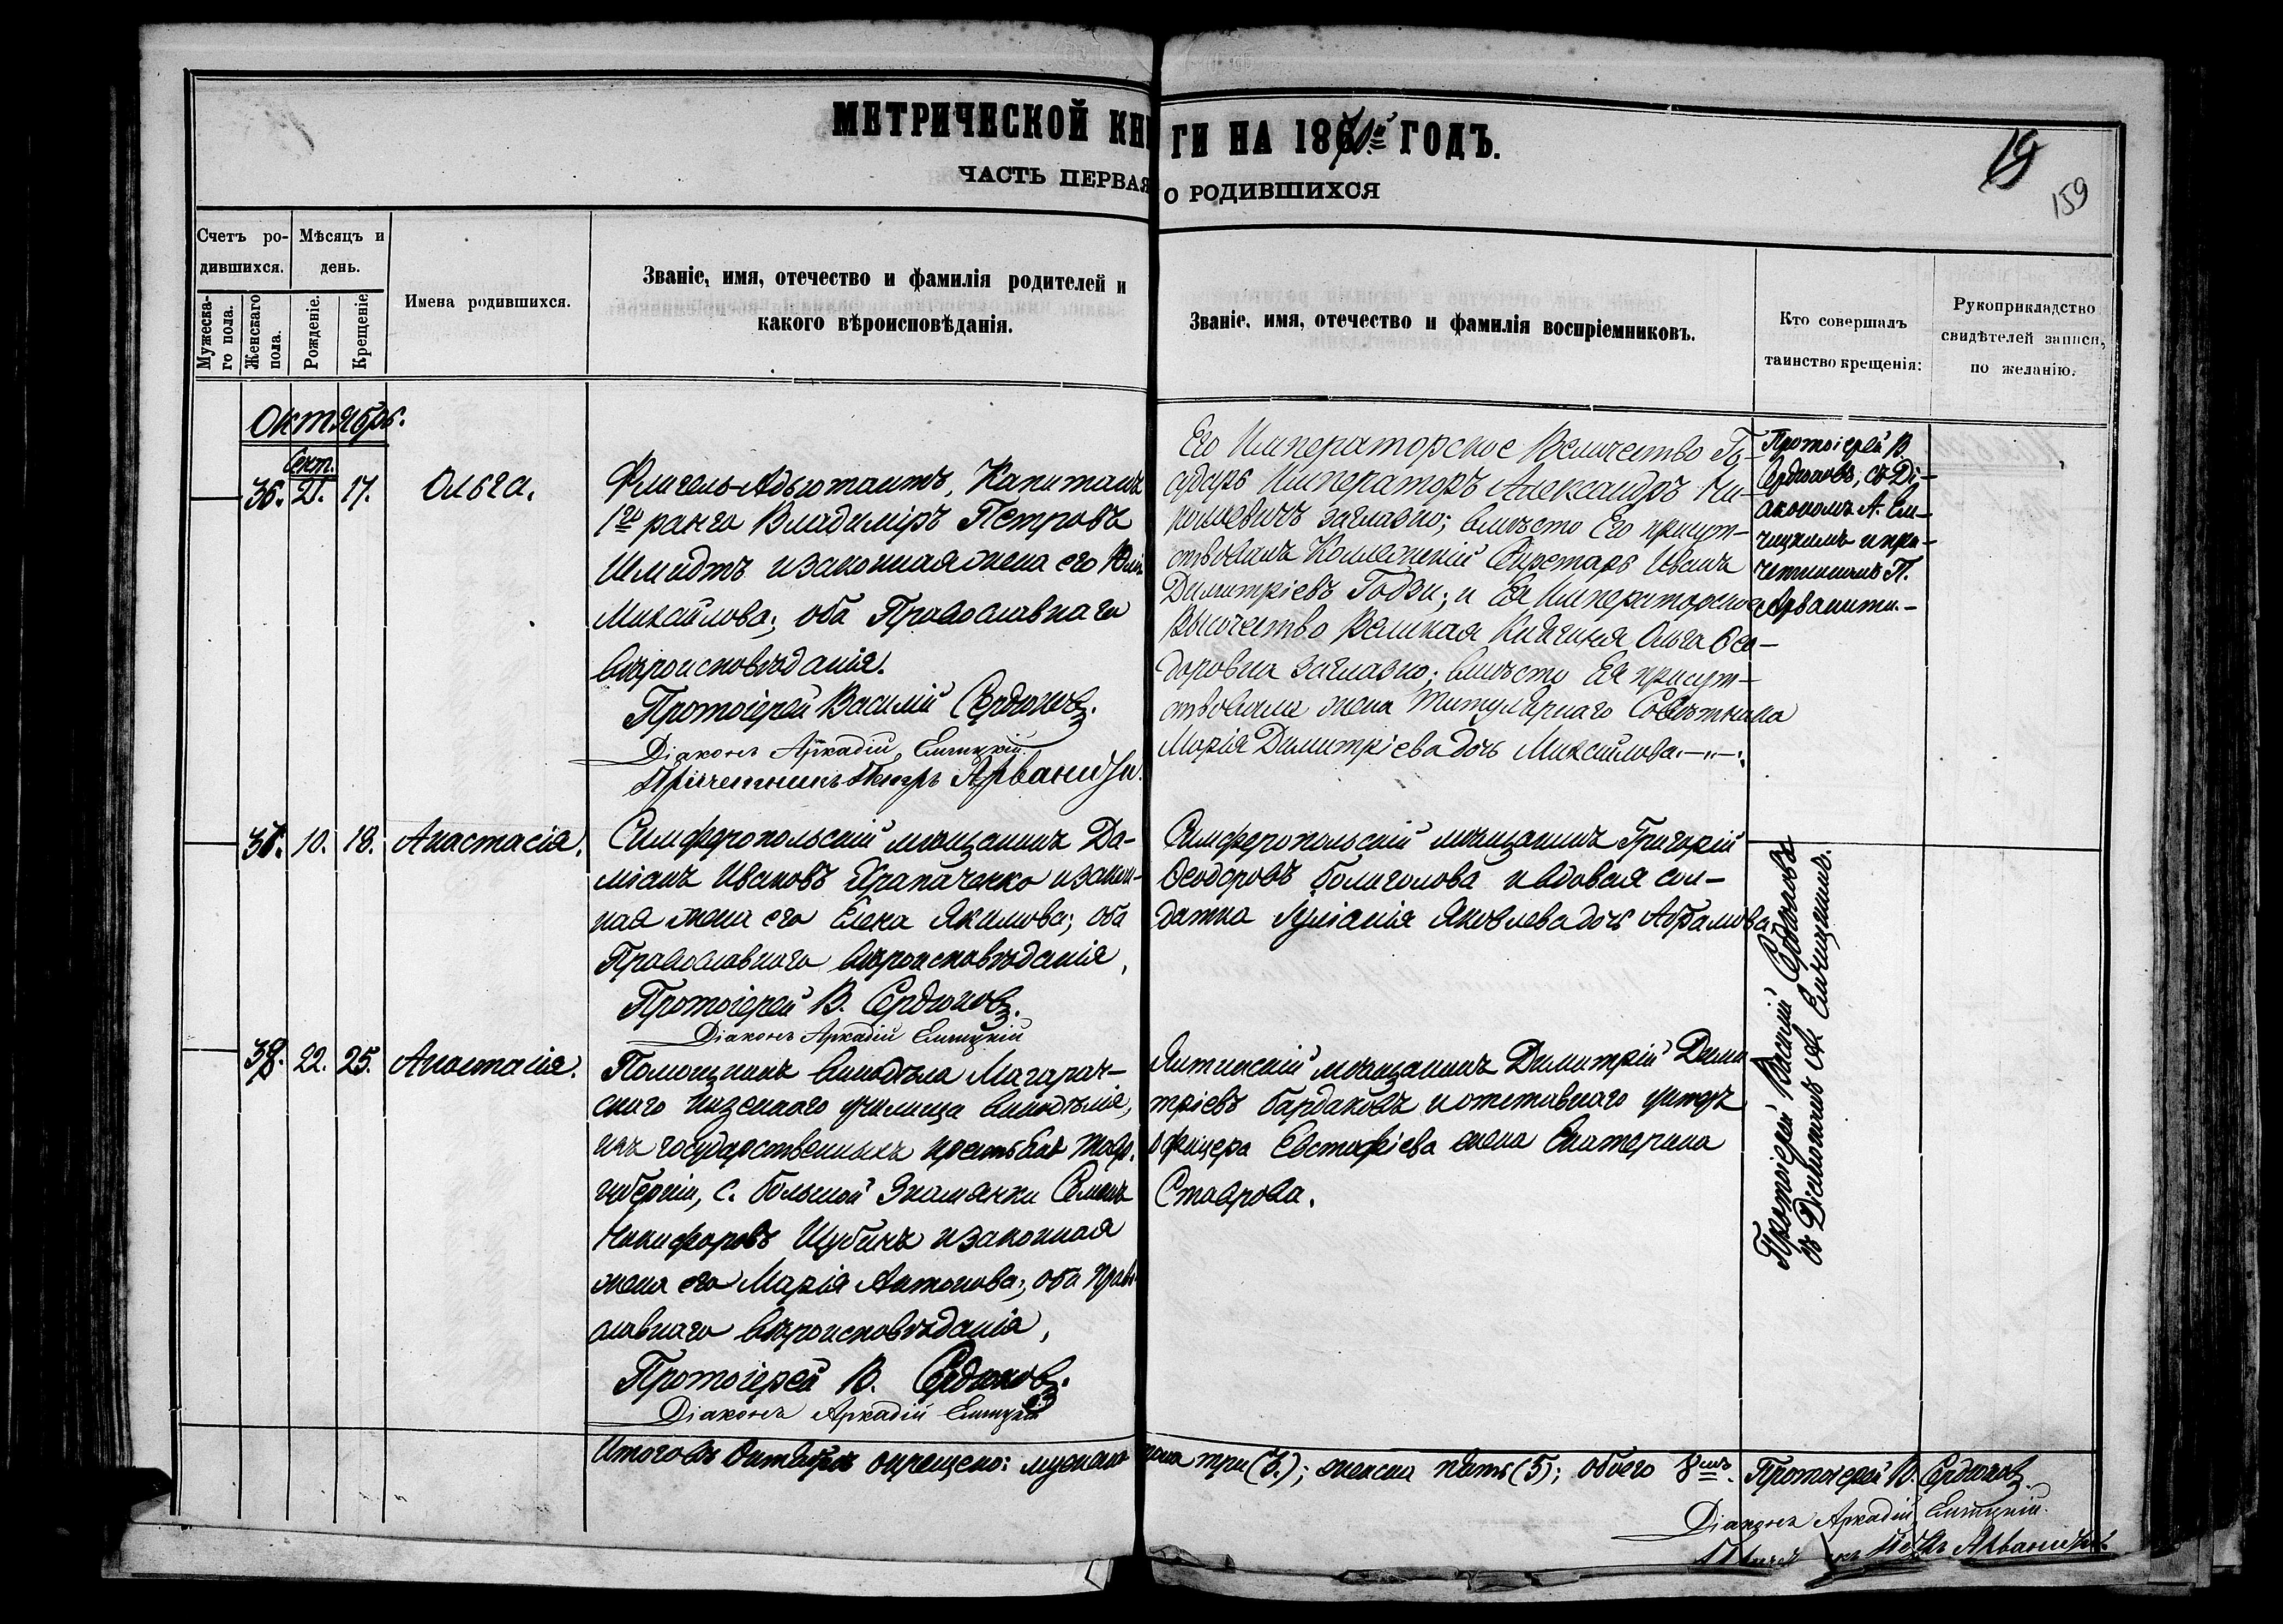 МЕТРИЧЕСКОЙ КНИГИ НА 1870й ГОДЪ.
ЧАСТЬ ПЕРВАЯ О РОДИВШИХСЯ
19
159
Счетъ родившихся.
Мѣсяцъ и день.
Мужескаго пола.
Женскаго пола.
Рожденіе.
Крещеніе
Имена родившихся.
Званіе, имя, отечество и фамилія родителей и
какого вѣроисповѣданія.
Званіе, имя, отечество и фамилія воспріемниковъ.
Кто совершалъ
таинство крещенія:
Рукоприкладство
свидѣтелей записи,
по желанію.
Октябрь.
Сент.
36. 21. 17. Ольга.
Флигель-Адъютантъ, Капитанъ
1го ранга Владиміръ Петровъ
Шмидтъ и законная жена его Юлія
Михайлова; оба Православнаго
вѣроисповѣданія.
Протоіерей Василій Сердюковъ.
Діаконъ Аркадій Еницкій.
Причетникъ Петръ Арванити.
Его Императорское Величество Го-
сударь Императоръ Александръ Ни-
колаевичъ заглазно; вмѣсто Его присут-
ствовалъ Коллежскій Секретарь Иванъ
Димитріевъ Годзи; и Ея Императорское
Высочество Великая Княгиня Ольга Ѳео-
доровна заглазно; вмѣсто Ея присут-
ствовала жена Титулярнаго Совѣтника
Марія Димитріева дочь Михайлова.
Протоіерей В.
Сердюковъ, съ Ді-
акономъ А. Ени-
цкимъ и при-
четникомъ П.
Арванити.
37. 10. 18. Анастасія.
Симферопольскій мѣщанинъ Да-
міанъ Ивановъ Храпаченко и закон-
ная жена его Елена Якимова; оба
Православнаго вѣроисповѣданія.
Протоіерей В. Сердюковъ.
Діаконъ Аркадій Еницкій
Симферопольскій мѣщанинъ Григорій
Ѳеодоровъ Болиголова и вдовая сол-
датка Іуліанія Яковлева дочь Абрамова
Протоіерей Василій Сердюковъ
съ Діакономъ А. Еницкимъ.
38. 22. 25. Анастасія.
Помощникъ винодѣла Магарач-
скаго Казеннаго училища винодѣлія,
изъ государственныхъ крестьянъ Тавр.
губерніи, с. Большой Знаменки Семенъ
Никифоровъ Шубинъ и законная
жена его Марія Антонова; оба Право-
славнаго вѣроисповѣданія.
Протоіерей В. Сердюковъ.
Діаконъ Аркадій Еницкій
Ялтинскій мѣщанинъ Димитрій Дими-
тріевъ Бардаковъ и отставнаго унтеръ
офицера Евстафіева жена Екатерина
Ставрова.
Итого въ Октябрѣ окрещено: мужеска пола три (3.); женска пять (5); обоего 8мь.
Протоіерей В. Сердюковъ.
Діаконъ Аркадій Еницкій.
Петръ Арванити.